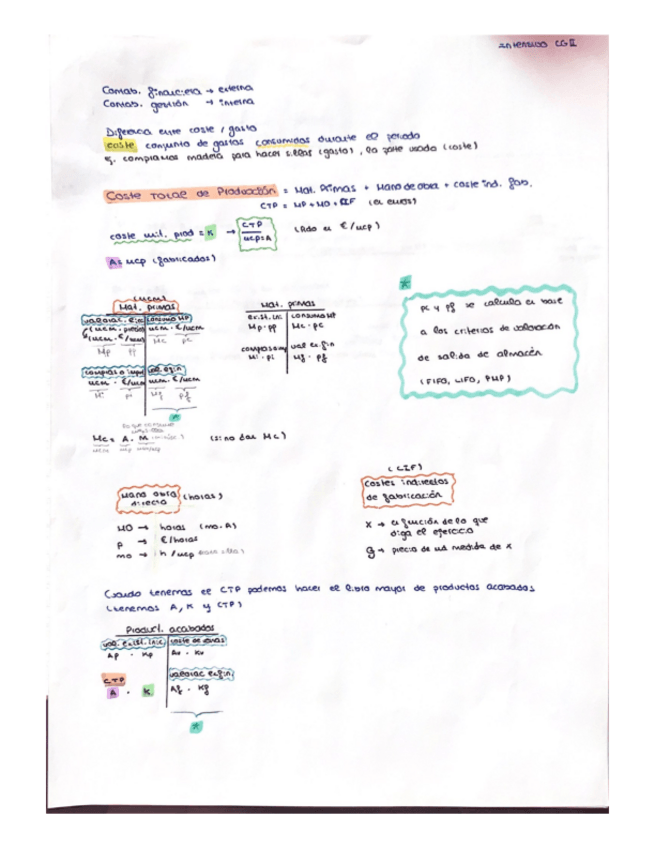 INTENSIVO CG II
Contab. financiera → externa
Contab. gestión → interna
Diferencia entre coste / gasto
coste conjunto de gastos consumidos durante el periodo
Ej. compramos madera para hacer sillas (gasto), la parte usada (coste)
COSTE TOTAL DE PRODUCCIÓN = Mat. Primas + Mano de obra + coste ind. fab.
CTP = MP + MO + CIF (en euros)
coste unit. prod = K → CTP / ucp=A (Ado en €/ucp)
A = ucp (fabricados)
(ucm)
Mat. primas
valorac. e.ic consumo MP
ucm · €/ucm
Mp pp Mc pc
compras val. ex. fin
ucm · €/ucm ucm · €/ucm
Mi pi Mf pf
Mat. primas
exist. ini consumo MP
Mp · pp Mc · pc
compras val ex. fin
Mi · pi Mf · pf
pc y pf se calcula en base
a los criterios de valoración
de salida de almacén
(FIFO, LIFO, PMP)
Mc = A · M (si no dan Mc)
ucm ucp ucm/ucp
Mano obra directa (horas)
MO → horas (mo. A)
p → €/horas
mo → h/ucp
(CIF)
Costes indirectos
de fabricación
X → en función de lo que
diga el ejercicio
g → precio de ud medida de X
Cuando tenemos el CTP podemos hacer el libro mayor de productos acabados
(tenemos A, K y CTP)
Product. acabados
val. exist. inic. coste de ventas
Ap · Kp Av · Kv
valorac ex. fin.
CTP
A · K Af · Kf